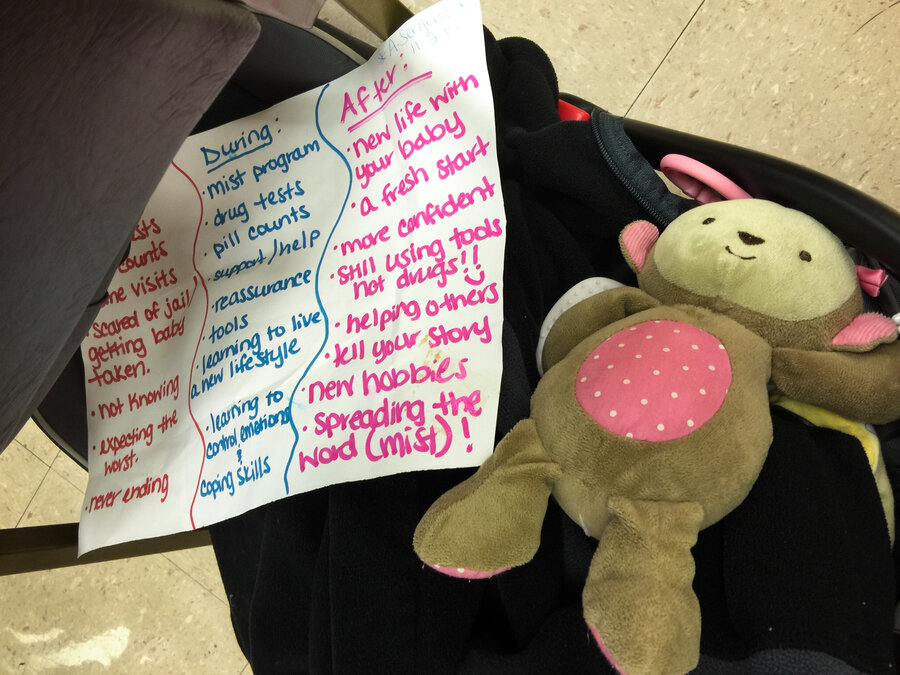 counts
visits
• scared of jail/
getting baby
taken.
• not knowing
• expecting the
worst.
• never ending
During:
• mist program
• drug tests
• pill counts
• support/help
• reassurance
• tools
• learning to live
a new lifestyle
• learning to
control emotions
&
coping skills
After:
• new life with
your baby
• a fresh start
• more confident
• still using tools
not drugs!!
• helping others
• tell your story
• new hobbies
• spreading the
word (mist)!